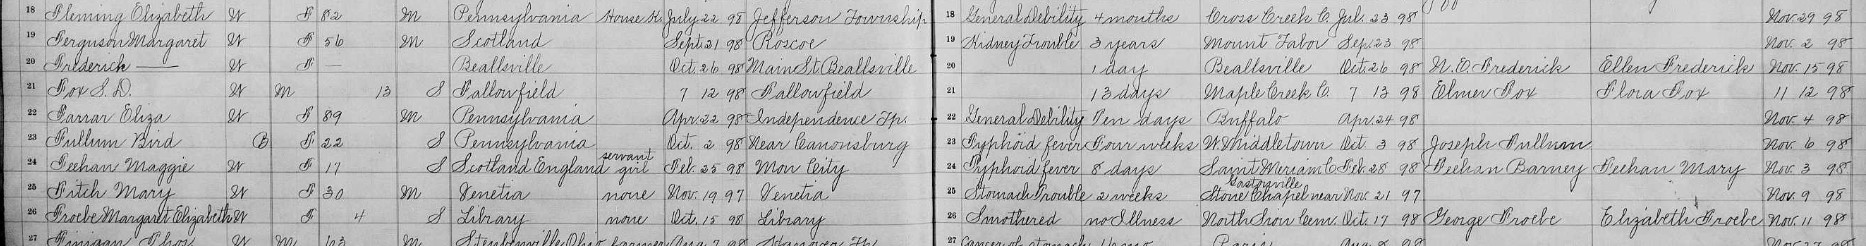 18 Fleming Elizabeth W F 82 M Pennsylvania House K. July 22 98 Jefferson Township 18 General Debility 4 months Cross Creek C. Jul. 23 98 Nov. 29 98
19 Ferguson Margaret W F 56 M Scotland Sept. 21 98 Roscoe 19 Kidney Trouble 3 years Mount Tabor Sep. 23 98 Nov. 2 98
20 Frederick — W F — Beallsville Oct. 26 98 Main St. Beallsville 20 1 day Beallsville Oct. 26 98 Frederick Ellen Frederick Nov. 15 98
21 Fox S. D. W M 13 S Fallowfield 7 12 98 Fallowfield 21 13 days Maple Creek C. 7 13 98 Elmer Fox Flora Fox 11 12 98
22 Farrar Eliza W F 89 M Pennsylvania Apr. 22 98 Independence Tp. 22 General Debility Ten days Buffalo Apr. 24 98 Nov. 4 98
23 Fullum Bird B F 22 S Pennsylvania Oct. 2 98 Near Canonsburg 23 Typhoid fever Four weeks W Middletown Oct. 3 98 Joseph Fullum Nov. 6 98
24 Feehan Maggie W F 17 S Scotland England servant girl Feb. 25 98 Mon City 24 Typhoid fever 8 days Saint C. Feb. 28 98 Feehan Barney Feehan Mary Nov. 3 98
25 Fitch Mary W F 30 M Venetia none Nov. 19 97 Venetia 25 Stomach Trouble 2 weeks Stone Chapel near Gastonville Nov. 21 97 Nov. 9 98
26 Froebe Margaret Elizabeth W F 4 S Library none Oct. 15 98 Library 26 Smothered no Illness North Cem. Oct. 17 98 George Froebe Elizabeth Froebe Nov. 11 98
27 Finigan Thos W M M Steubenville Ohio farmer Aug. 98 Hanover Tp. 27 Cancer of stomach Paris Aug. 98